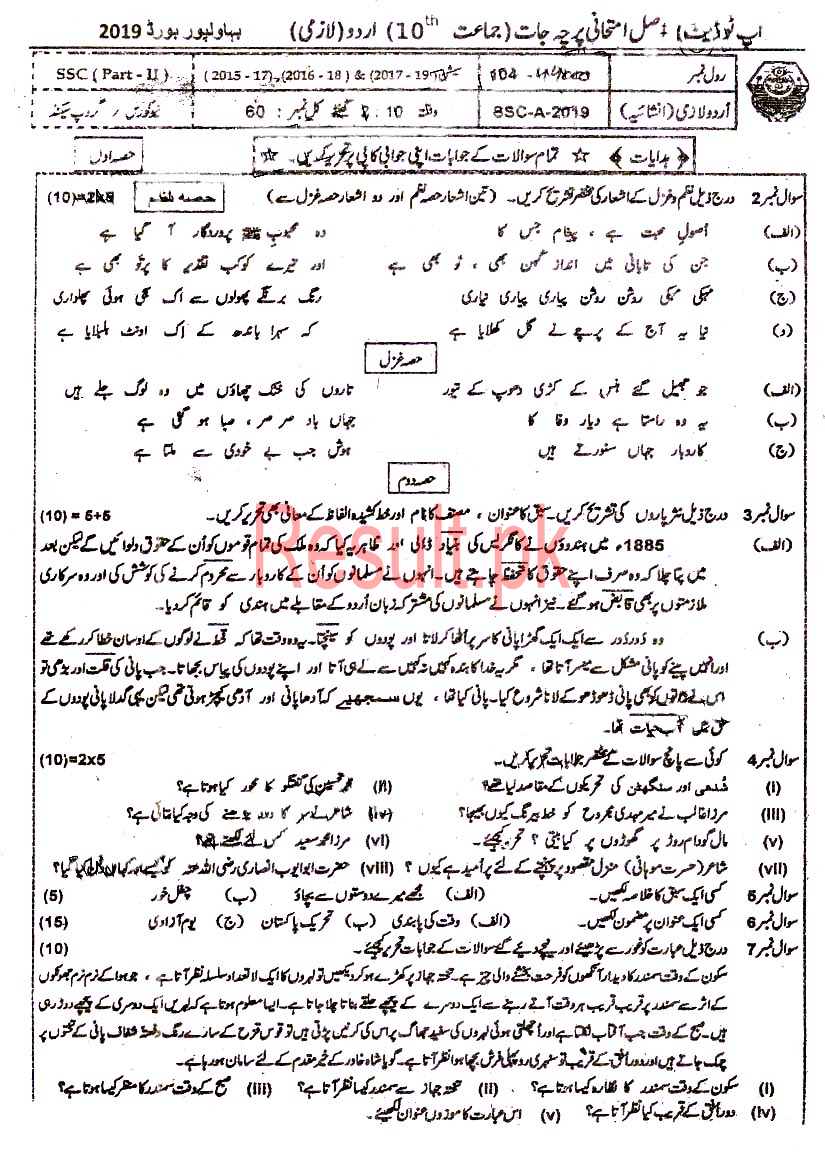 اپ ٹو ڈیٹ اصل امتحانی پرچہ جات (جماعت 10th) اردو (لازمی) بہاولپور بورڈ 2019
رول نمبر 104 سیشن (2015 - 17), (2016 - 18) & (2017 - 19) SSC ( Part - II )
اردو لازمی (انشائیہ) 8SC-A-2019 وقت 2:10 گھنٹے کل نمبر : 60
﴿ ہدایات ﴾ ☆ تمام سوالات کے جوابات اپنی جوابی کاپی پر تحریر کریں۔ ☆ حصہ اول
سوال نمبر 2 درج ذیل نظم و غزل کے اشعار کی مختصر تشریح کریں۔ (تین اشعار حصہ نظم اور دو اشعار حصہ غزل سے) حصہ نظم (10)=2x5
(الف) اصولِ محبت ہے ، پیغام جس کا وہ محبوبِ ﷺ پروردگار آ گیا ہے
(ب) جن کی تابانی میں اندازِ کہن بھی ، نو بھی ہے اور تیرے کوکبِ تقدیر کا پرتَو بھی ہے
(ج) مہکی مہکی روشن روشن پیاری پیاری نیاری رنگ برنگے پھولوں سے اک سجی ہوئی پھلواری
(د) نیا یہ آج کے پرچے نے گل کھلایا ہے کہ سہرا باندھ کے اک اونٹ بلبلایا ہے
حصہ غزل
(الف) جو جھیل گئے ہنس کے کڑی دھوپ کے تیور تاروں کی خنک چھاؤں میں وہ لوگ جلے ہیں
(ب) یہ وہ راستا ہے دیارِ وفا کا جہاں بادِ صر صر ، صبا ہو گئی ہے
(ج) کاروبارِ جہاں سنورتے ہیں ہوش جب بے خودی سے ملتا ہے
حصہ دوم
سوال نمبر 3 درج ذیل نثر پاروں کی تشریح کریں۔ سبق کا عنوان ، مصنف کا نام اور خط کشیدہ الفاظ کے معانی بھی تحریر کریں۔ (10) = 5+5
(الف) 1885ء میں ہندوؤں نے کانگریس کی بنیاد ڈالی اور ظاہر یہ کیا کہ وہ ملک کی تمام قوموں کو اُن کے حقوق دلوائیں گے لیکن بعد
میں پتا چلا کہ وہ صرف اپنے حقوق کا تحفظ چاہتے ہیں۔ انہوں نے مسلمانوں کو اُن کے کاروبار سے محروم کرنے کی کوشش کی اور وہ سرکاری
ملازمتوں پر بھی قابض ہو گئے۔ نیز انہوں نے مسلمانوں کی مشترکہ زبان اُردو کے مقابلے میں ہندی کو قائم کر دیا۔
(ب) وہ دُور دُور سے ایک ایک گھڑا پانی کا سر پر اُٹھا کر لاتا اور پودوں کو سینچتا۔ یہ وہ وقت تھا کہ قحط نے لوگوں کے اوسان خطا کر رکھے تھے
اور انہیں پینے کو پانی مشکل سے میسر آتا تھا ، مگر یہ خدا کا بندہ کہیں نہ کہیں سے لے ہی آتا اور اپنے پودوں کی پیاس بجھاتا۔ جب پانی کی قلت اور بڑھی تو
اس نے راتوں کو بھی پانی ڈھو ڈھو کے لانا شروع کیا۔ پانی کیا تھا ، یوں سمجھیے کہ آدھا پانی اور آدھی کیچڑ ہوتی تھی لیکن یہی گدلا پانی پودوں کے
حق میں آبِ حیات تھا۔
سوال نمبر 4 کوئی سے پانچ سوالات کے مختصر جوابات تحریر کریں۔ (10)=2x5
(i) شُدھی اور سنگھٹن کی تحریکوں کے مقاصد کیا تھے؟ (ii) محمد حسین کی گفتگو کا محور کیا ہوتا ہے؟
(iii) مرزا غالب نے میر مہدی مجروح کو خط بیرنگ کیوں بھیجا؟ (iv) شاعر نے سر کا درد بڑھنے کی وجہ کیا بتائی ہے؟
(v) مال گودام روڈ پر گھوڑوں پر کیا بیتی ؟ تحریر کیجئے۔ (vi) مرزا محمد سعید کس لئے لکھتے تھے؟
(vii) شاعر (حسرت موہانی) منزلِ مقصود پر پہنچنے کے لئے پر اُمید ہے کیوں ؟ (viii) حضرت ابو ایوب انصاری رضی اللہ عنہ کو کیسے اور کہاں دفن کیا گیا؟
سوال نمبر 5 کسی ایک سبق کا خلاصہ لکھیں۔ (الف) مجھے میرے دوستوں سے بچاؤ (ب) چغل خور (5)
سوال نمبر 6 کسی ایک عنوان پر مضمون لکھیں۔ (الف) وقت کی پابندی (ب) تحریکِ پاکستان (ج) یومِ آزادی (15)
سوال نمبر 7 درج ذیل عبارت کو غور سے پڑھیئے اور نیچے دیئے گئے سوالات کے جوابات تحریر کیجئے۔ (10)
سکون کے وقت سمندر کا دیدار آنکھوں کو فرحت بخشنے والی چیز ہے۔ تختہ جہاز پر کھڑے ہو کر دیکھیں تو لہروں کا ایک لا تعداد سلسلہ نظر آتا ہے ، جو ہوا کے نرم نرم جھونکوں
کے اثر سے سمندر پر قریب قریب ہر وقت آتے رہنے سے ایک دوسرے کے پیچھے حلقے بناتا چلا جاتا ہے۔ ایسا معلوم ہوتا ہے کہ لہریں ایک دوسری کے پیچھے دوڑ رہی
ہیں۔ صبح کے وقت جب آفتاب نکلتا ہے اور اُچھلتی ہوئی لہروں کی سفید جھاگ پر اس کی کرنیں پڑتی ہیں تو قوسِ قزح کے سارے رنگ دفعۃً شفاف پانی کے تختوں پر
چمک جاتے ہیں اور دور اُفق کے قریب تو سنہری روپہلی فرش بچھا ہوا نظر آتا ہے۔ گویا شاہِ خاور کے خیر مقدم کے لئے سامان ہو رہا ہے۔
(i) سکون کے وقت سمندر کا نظارہ کیا ہوتا ہے؟ (ii) تختہ جہاز سے سمندر کیسا نظر آتا ہے؟ (iii) صبح کے وقت سمندر کا منظر کیسا ہوتا ہے؟
(iv) دور اُفق کے قریب کیا نظر آتا ہے؟ (v) اس عبارت کا موزوں عنوان لکھیئے۔
Result.pk